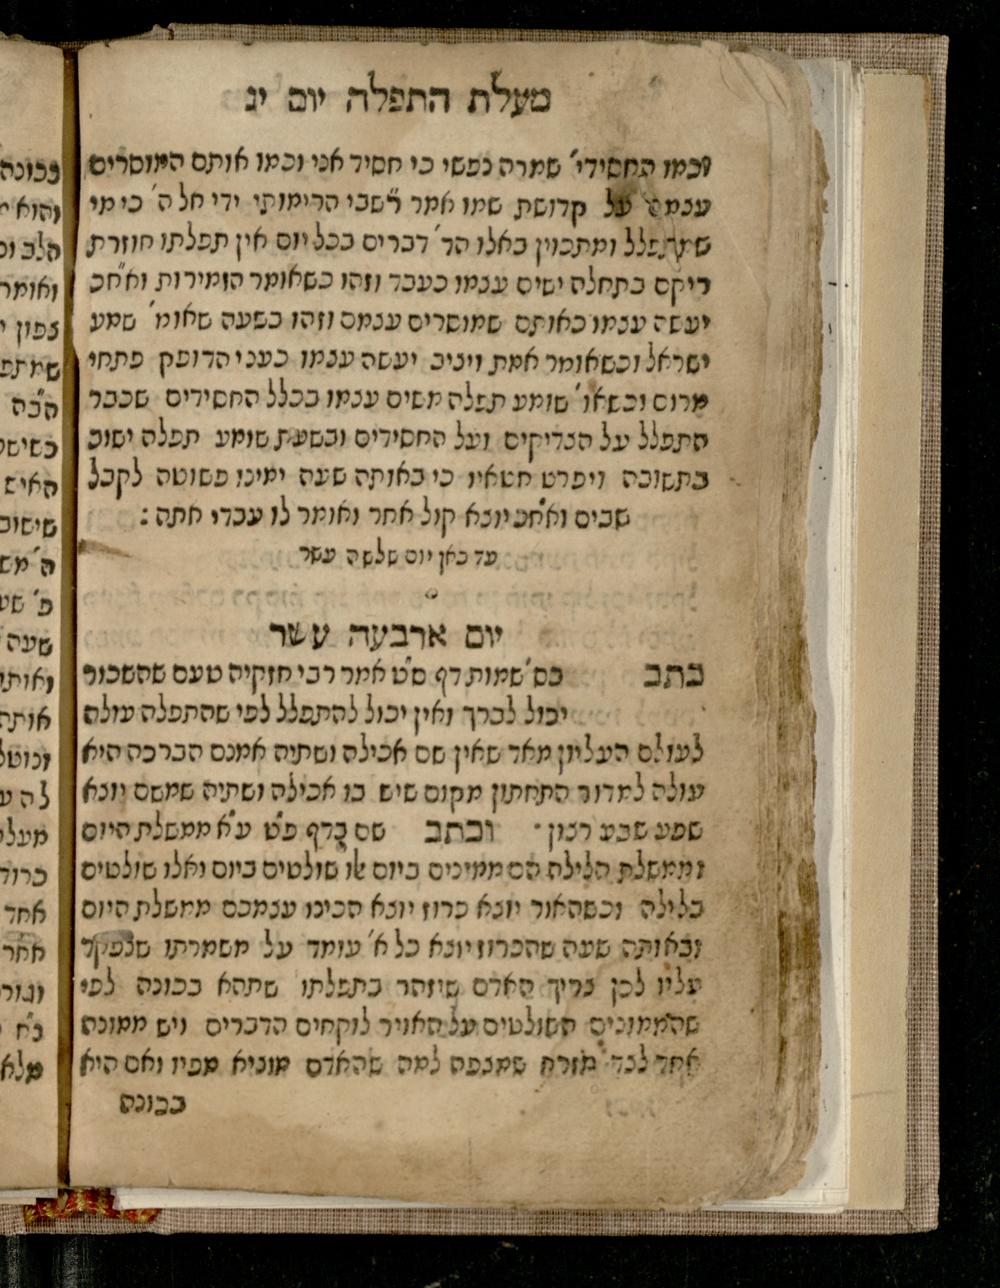 מעלת התפלה יום יג
וכמו החסידי' שמרה נפשי כי חסיד אני וכמו אותם המוסרים
עצמם על קדושת שמו אמר רשב"י הרימותי ידי אל ה' כי מי
שמתפלל ומתכוין באלו הד' דברים בכל יום אין תפלתו חוזרת
ריקם בתחלה ישים עצמו כעבד וזהו כשאומר הזמירות ואח"כ
יעשה עצמו כאותם שמוסרים עצמם וזהו בשעה שאומ' שמע
ישראל וכשאומר אמת ויציב יעשה עצמו כעני הדופק פתחי
מרום וכשאו' שומע תפלה משים עצמו בכלל החסידים שכבר
התפלל על הצדיקים ועל החסידים ובשעת שומע תפלה ישוב
בתשובה ויפרט חטאיו כי באותה שעה ימינו פשוטה לקבל
שבים ואח"כ יוצא קול אחד ואומר לו עבדי אתה :
עד כאן יום שלשה עשר
יום ארבעה עשר
כתב בס' שמות דף ס"ט אמר רבי חזקיה טעם שהשכור
יכול לברך ואין יכול להתפלל לפי שהתפלה עולה
לעולם העליון מאד שאין שם אכילה ושתיה אמנם הברכה היא
עולה למדור התחתון מקום שיש בו אכילה ושתיה שמשם יוצא
שפע שבע רצון · וכתב שם בדף פ"ט ע"א ממשלת היום
וממשלת הלילה הם ממינים ביום אלו שולטים ביום ואלו שולטים
בלילה וכשהאור יוצא כרוז יוצא הכינו עצמכם ממשלת היום
ובאותה שעה שהכרוז יוצא כל א' עומד על משמרתו שנפקד
עליו לכן צריך האדם שיזהר בתפלתו שתהא בכונה לפי
שהממונים השולטים על האויר לוקחים הדברים ויש ממונה
אחד לצד מזרח שמצפה למה שהאדם מוציא מפיו ואם היא
בכונה